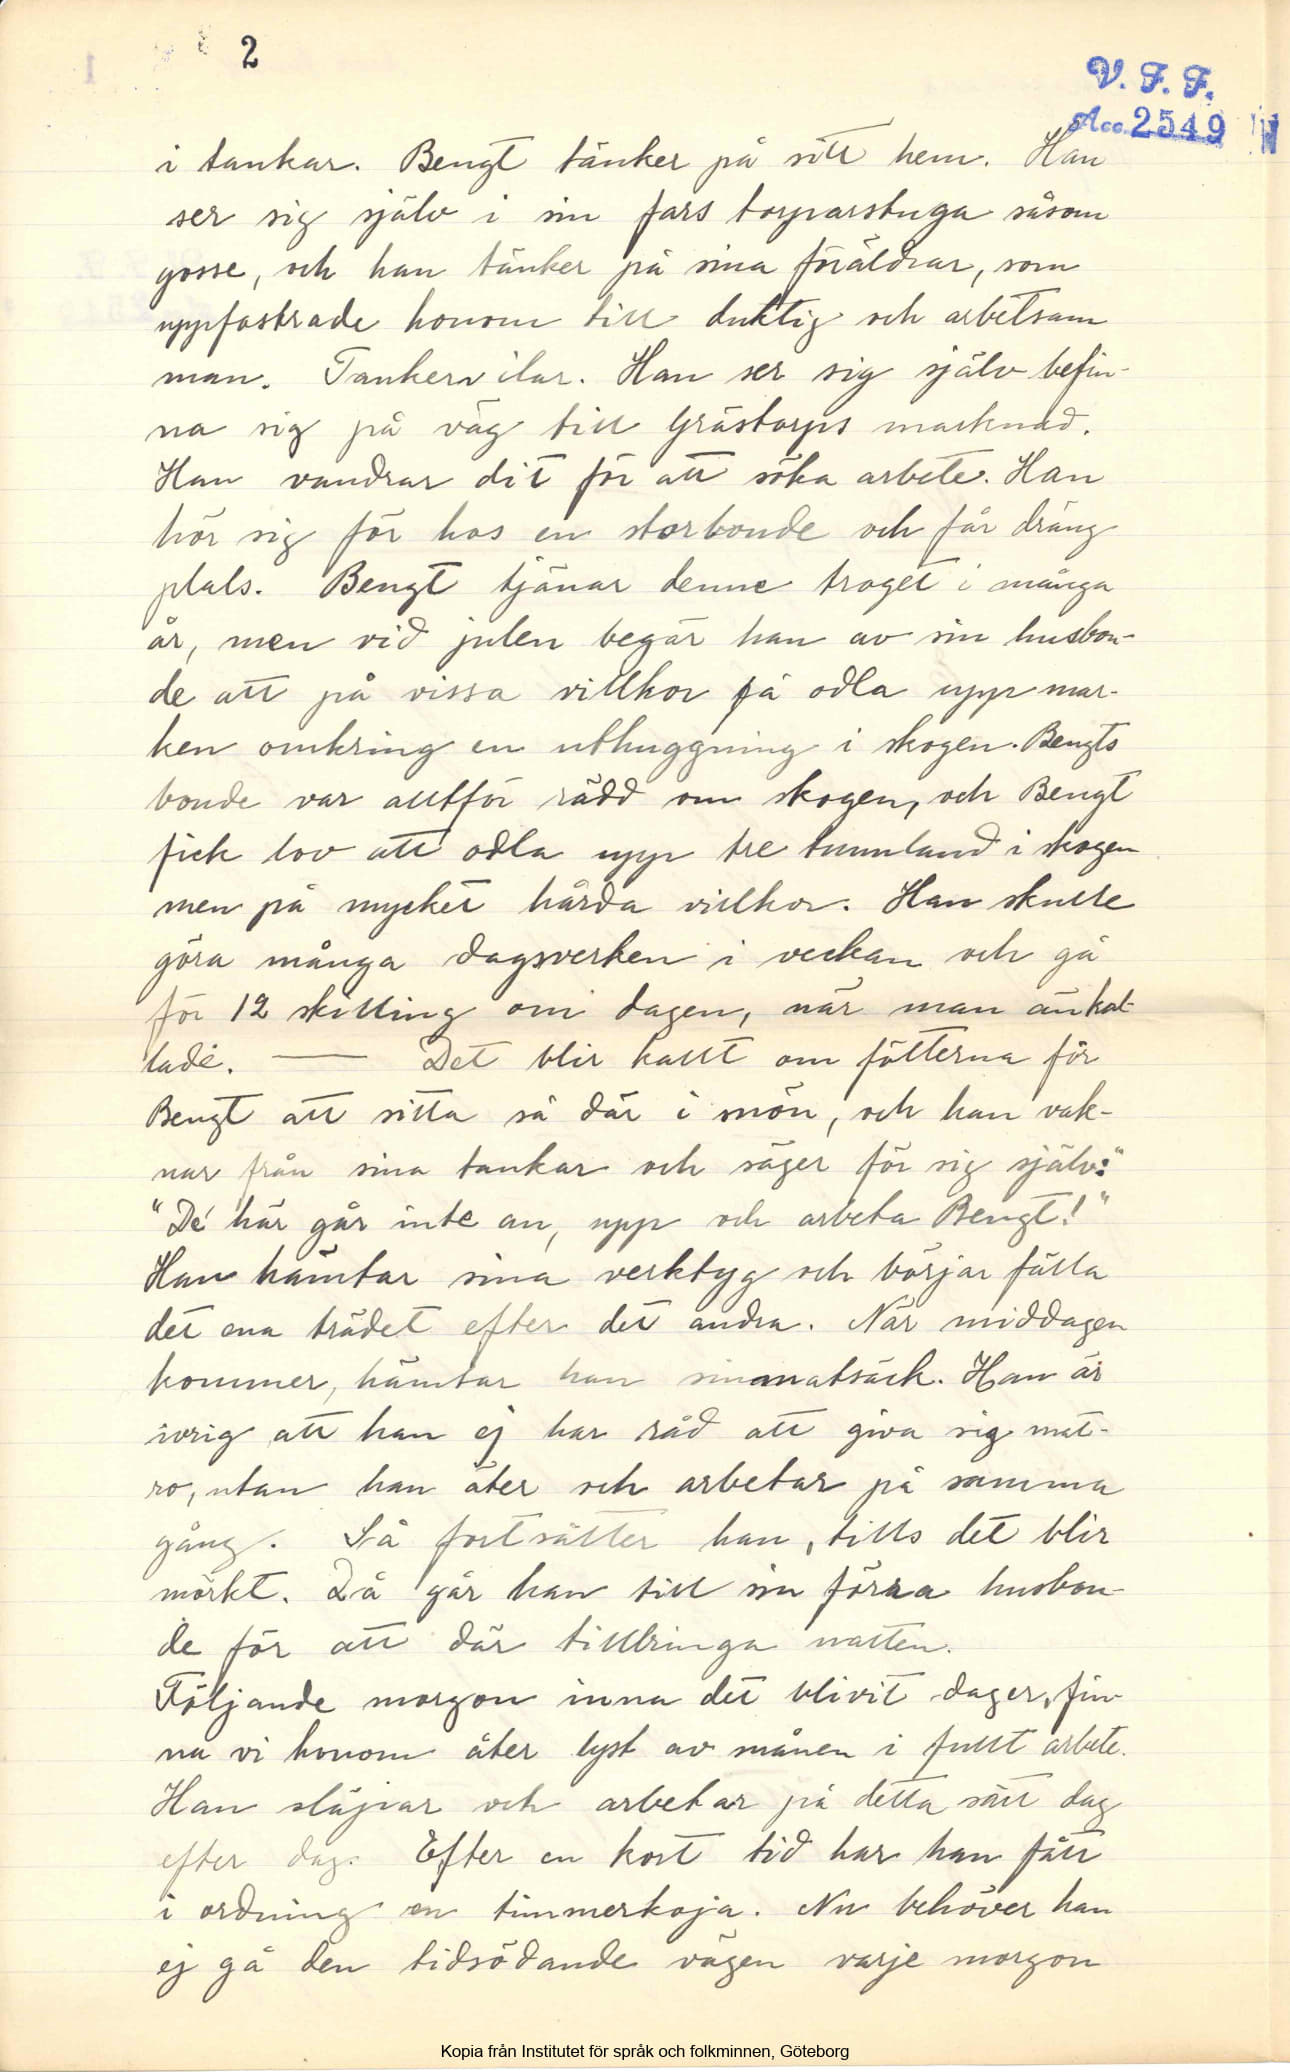 2
V. F. F.
Acc. 2549
i tankar. Bengt tänker på sitt hem. Han
ser sig själv i sin fars torparstuga såsom
gosse, och han tänker på sina föräldrar, som
uppfostrade honom till duktig och arbetsam
man. Tanken ilar. Han ser sig själv befin-
na sig på väg till Grästorps marknad.
Han vandrar dit för att söka arbete. Han
hör sig för hos en storbonde och får dräng
plats. Bengt tjänar denne troget i många
år, men vid julen begär han av sin husbon-
de att på vissa villkor få odla upp mar-
ken omkring en uthuggning i skogen. Bengts
bonde var alltför rädd om skogen, och Bengt
fick lov att odla upp tre tunnland i skogen
men på mycket hårda villkor. Han skulle
göra många dagsverken i veckan och gå
för 12 skilling om dagen, när man än kal-
lade. — Det blir kallt om fötterna för
Bengt att sitta så där i snön, och han vak-
nar från sina tankar och säger för sig själv:"
"De' här går inte an, upp och arbeta Bengt!"
Han hämtar sina verktyg och börjar fälla
det ena trädet efter det andra. När middagen
kommer, hämtar han sin matsäck. Han är
ivrig att han ej har råd att giva sig mat-
ro, utan han äter och arbetar på samma
gång. Så fortsätter han, tills det blir
mörkt. Då går han till sin förra husbon-
de för att där tillbringa natten.
Följande morgon inna det blivit dager, fin-
na vi honom åter lyst av månen i fullt arbete.
Han släpar och arbetar på detta sätt dag
efter dag. Efter en kort tid har han fått
i ordning en timmerkoja. Nu behöver han
ej gå den tidsödande vägen varje morgon
Kopia från Institutet för språk och folkminnen, Göteborg